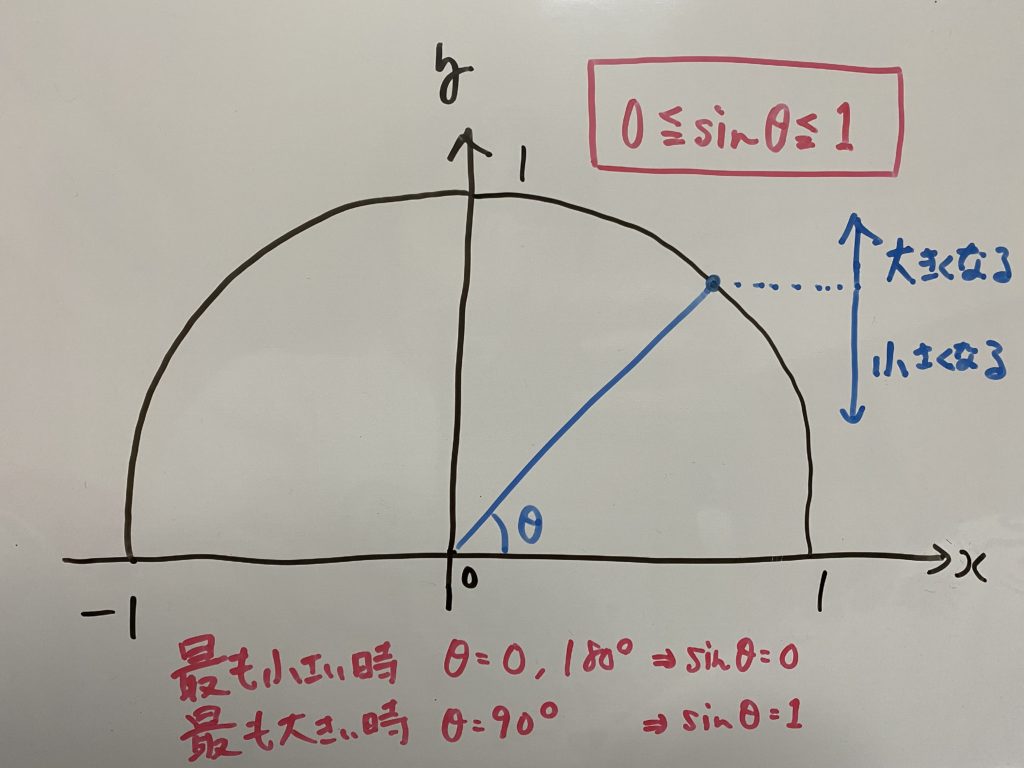 y
0 ≦ sin θ ≦ 1
1
大きくなる
小さくなる
θ
0
x
-1
1
最も小さい時 θ=0, 180° ⇒ sin θ=0
最も大きい時 θ=90° ⇒ sin θ=1